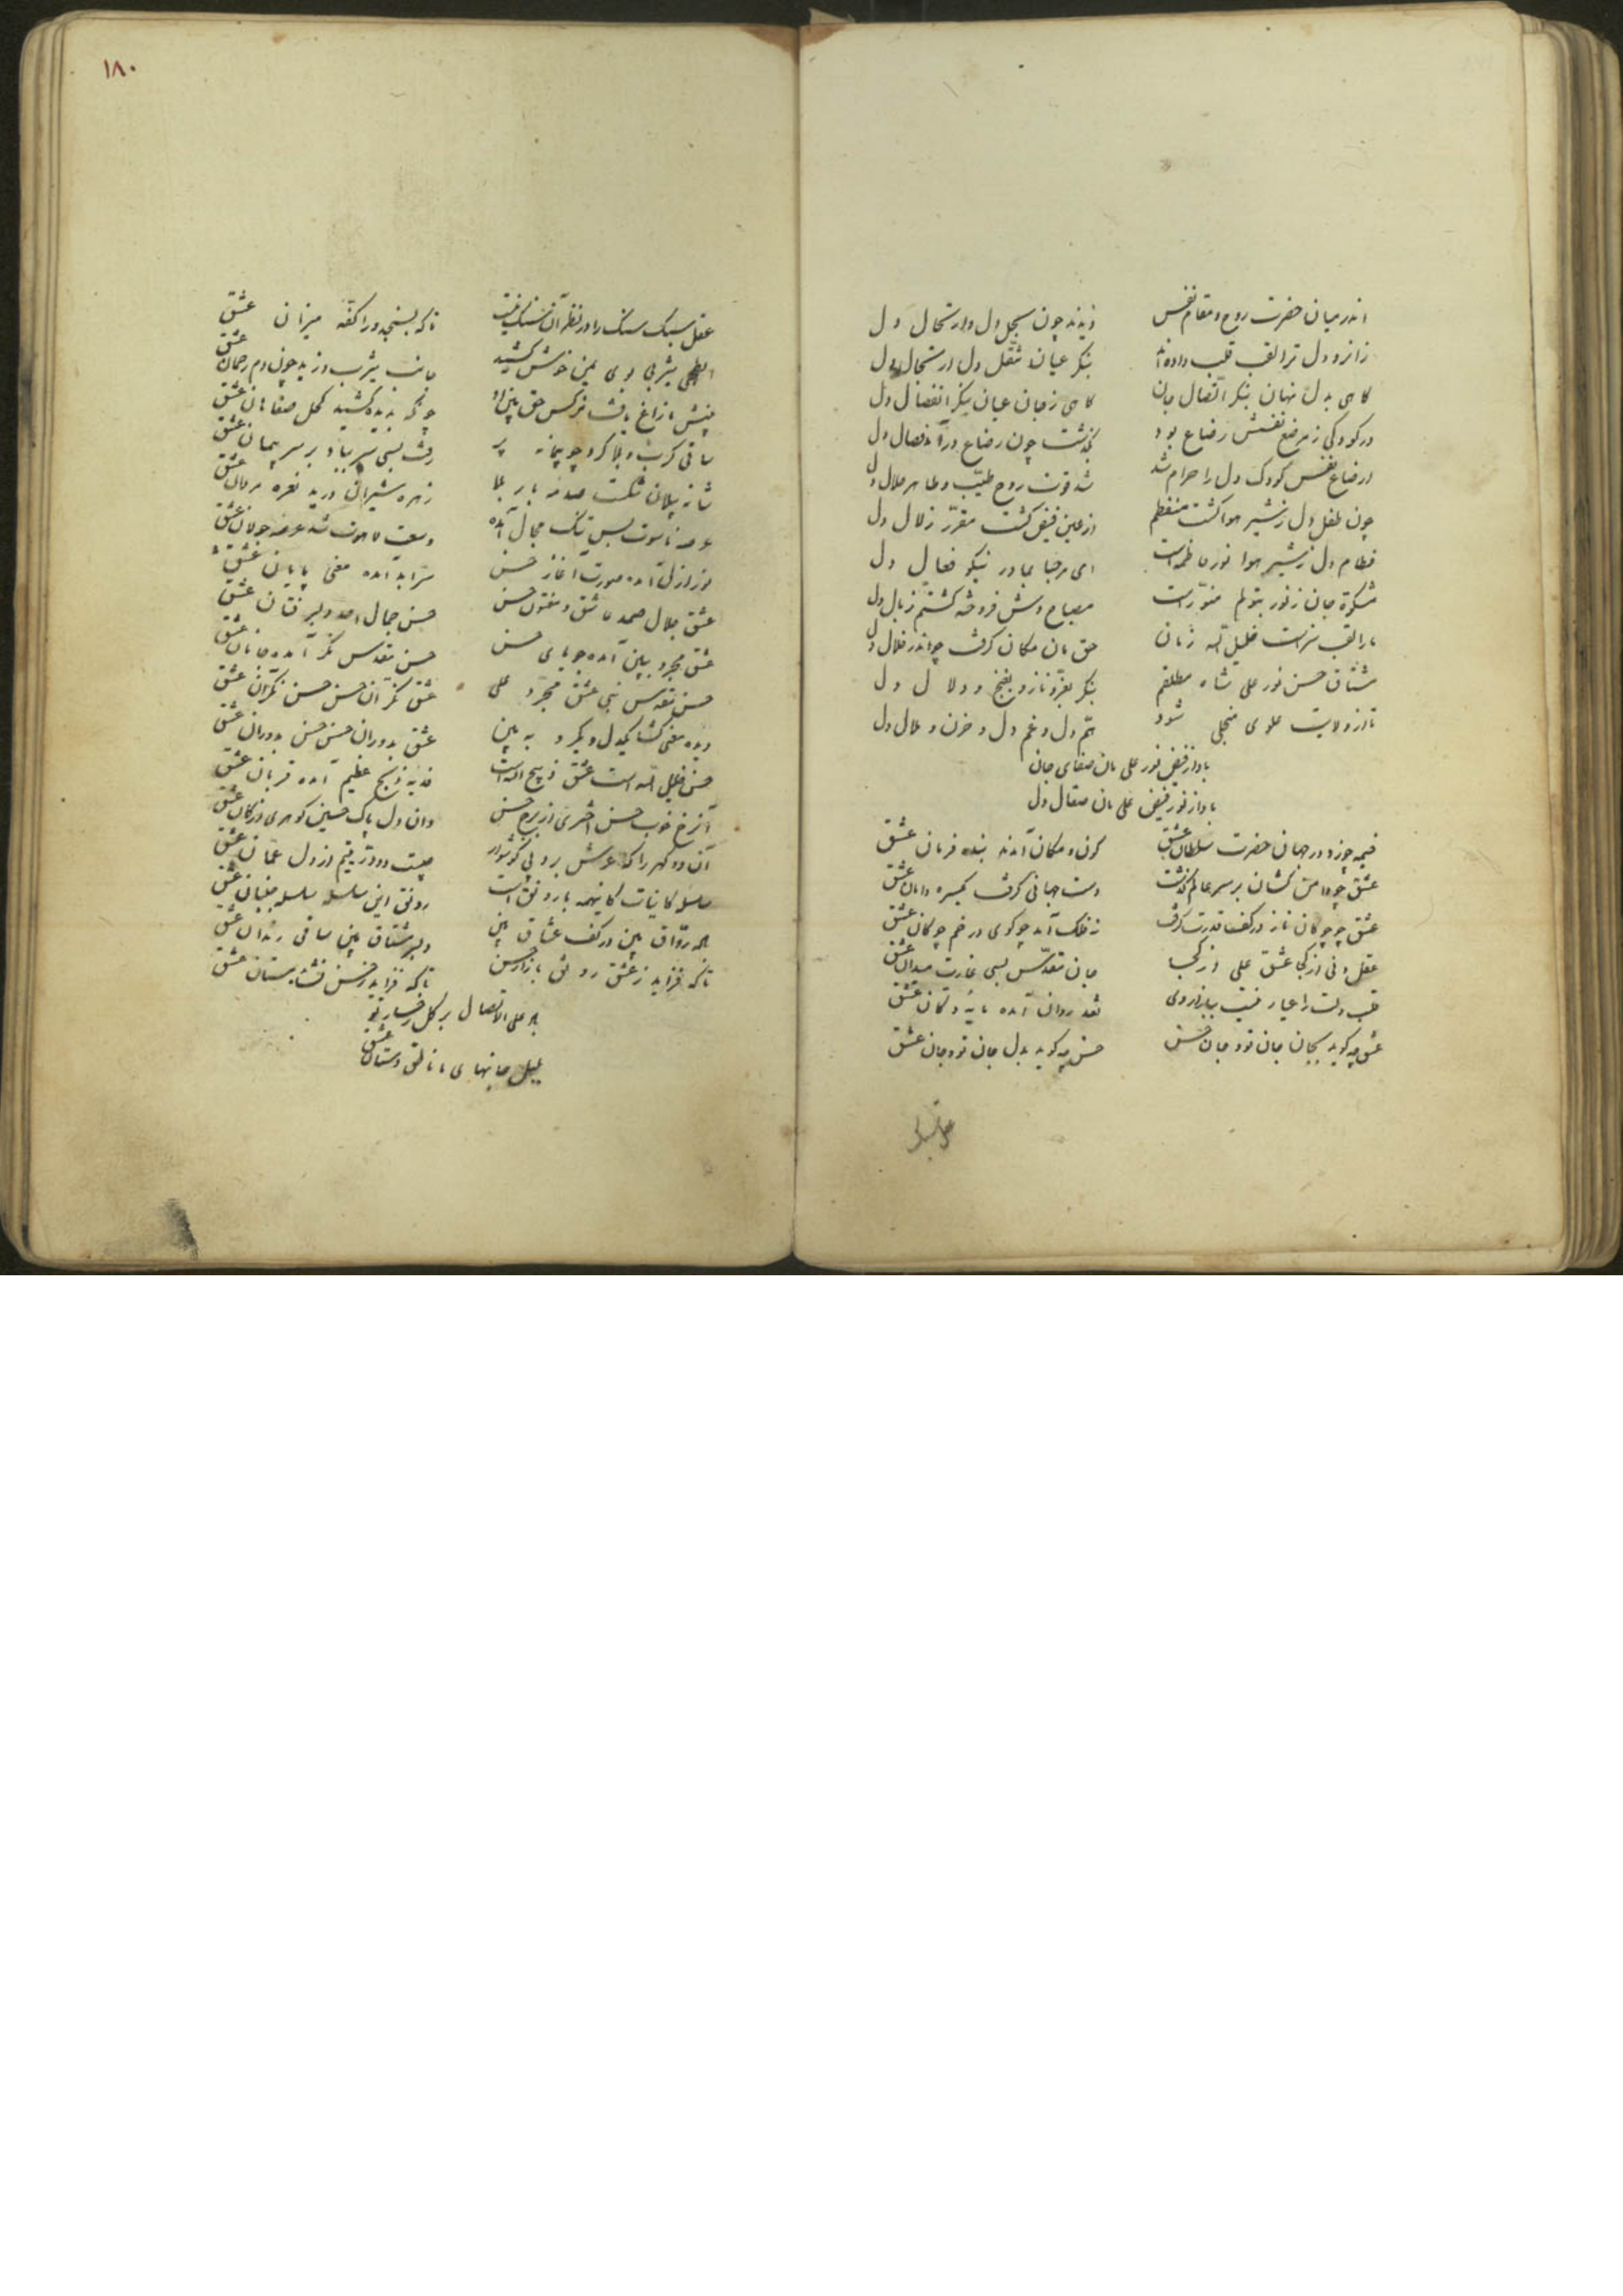 اندر میان حضرت روح و مقام نفس
دیدند چون سجل دل و ارتحال دل
زانرو دل ترا لقب قلب داده‌اند
بنگر عیان تنقل دل ارتحال دل
گاهی بدل نهان بنگر اتصال جان
گاهی ز جان عیان بنگر انفصال دل
در کودکی ز مرضع نفسش رضاع بود
بگذشت چون رضاع در آمد فصال دل
ارضاع نفس کودک دل را حرام شد
شد قوت روح طیب و طاهر حلال دل
چون طفل دل ز شیر هوا گشت منفطم
از عین فیض گشت مقرر زلال دل
فطام دل ز شیر هوا نور فاطمه است
ای مرحبا بمادر نیکو فعال دل
مشکوة جان ز نور بتولم منور است
مصباح وش فروخته گشتم ذبال دل
ما را لقب سزاست خلیل اله زمان
حق مان مکان گرفت چو اندر خلال دل
مشتاق حسن نور علی شاه مطلقم
بنگر بعز و ناز و بغنج و دلال دل
تا از ولایت علوی منجلی شود
هم دل و غم دل و حزن و ملال دل
بادا ز فیض نور علی مان صفای جان
بادا ز نور فیض علی مان صقال دل
خیمه چو زد در جهان حضرت سلطان عشق
کون و مکان آمدند بنده فرمان عشق
عشق چو دامن کشان بر سر عالم گذشت
دست جهانی گرفت یکسره دامان عشق
عشق چو چوگان ناز در کف قدرت گرفت
نه فلک آمد چو گوی در خم چوگان عشق
عقل دنی از کجا عشق علی از کجا
جان مقدس بسی غارت میدان عشق
قلب دلت را عیار نیست ببازار وی
نقد روان آمده مایه دکان عشق
عشق چه گوید بجان جان تو و جان حسن
حسن چه گوید بدل جان تو و جان عشق
عقل سبک
۱۸۰
عقل سبک سنگ را در نظر آن سنگ نیست
تا که بسنجد ورا کفه میزان عشق
یثربی بوی یمن خوش کشید
جانب یثرب وزید چون دم رحمان عشق
بینش ما زاغ یافت نرگس حق بین او
چونکه بدیده کشید کحل صفاهان عشق
ساقی کرب و بلا کرد چو پیمانه پر
رفت بسی سر بباد بر سر پیمان عشق
شانه پیلان شکست صدمه بار بلا
زهره شیران درید نعره مردان عشق
عرصه ناسوت بس تنگ مجال آمده
وسعت لاهوت شد عرصه جولان عشق
نور ازل آمده صورت آغاز حسن
سر ابد آمده معنی پایان عشق
عشق جلال صمد عاشق و مفتون حسن
حسن جمال احد دلبر فتان عشق
عشق مجرد ببین آمده جویای حسن
حسن مقدس نگر آمده جانان عشق
حسن مقدس نبی عشق مجرد علی
عشق نگران حسن حسن نگران عشق
دیده معنی گشا یکدل و یکرو ببین
عشق بدوران حسن حسن بدوران عشق
حسن خلیل اله است عشق ذبیح اله است
فدیه ذبح عظیم آمده قربان عشق
آن رخ خوب حسن اختری از برج حسن
وان دل پاک حسین گوهری از کان عشق
آن دو گهر را که عرش برد پی گوشوار
چیست دو در یتیم از دل عمان عشق
سلسله کاینات کاینهمه با رونق است
رونق این سلسله سلسله جنبان عشق
باده رواق بین در کف عشاق بین
دلبر مشتاق بین ساقی رندان عشق
تا که فزاید ز عشق رونق بازار حسن
تا که فزاید ز حسن نشأ بستان عشق
باد علی الاتصال بر گل رخسار تو
بلبل جانهای ما ناطق دستان عشق